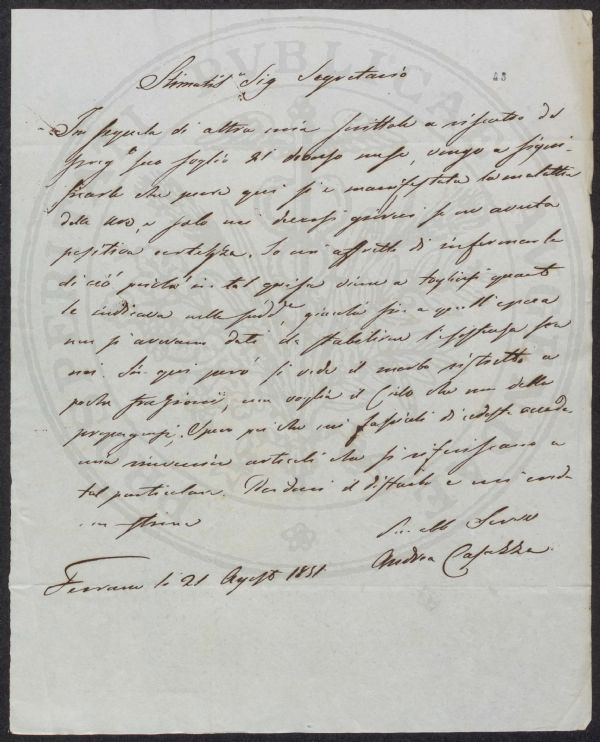 Stimatis. Sig. Segretario
43
In seguito di altra mia scrittale a riscontro del
suo foglio 21 decorso mese, vengo a signi-
ficarle che pure qui si è manifestata la malattia
delle uve, e solo nei decorsi giorni se ne avuta
positiva certezza. Io mi affretto di informarla
di ciò poiché in tal guisa viene a togliersi quanto
le indicava nella sudd. giacché fin a quell'epoca
non si avevano dati da stabilirne l'esistenza fra
noi. Fin qui però si vede il morbo ristretto a
poche, non voglia il Cielo che non debba
propagarsi. Spero poi che nei fascicoli di
articoli che si riferiscano a
tal particolare. Perdoni il disturbo e mi creda
con stima
Andrea Casazza
Ferrara li 21 Agosto 1851